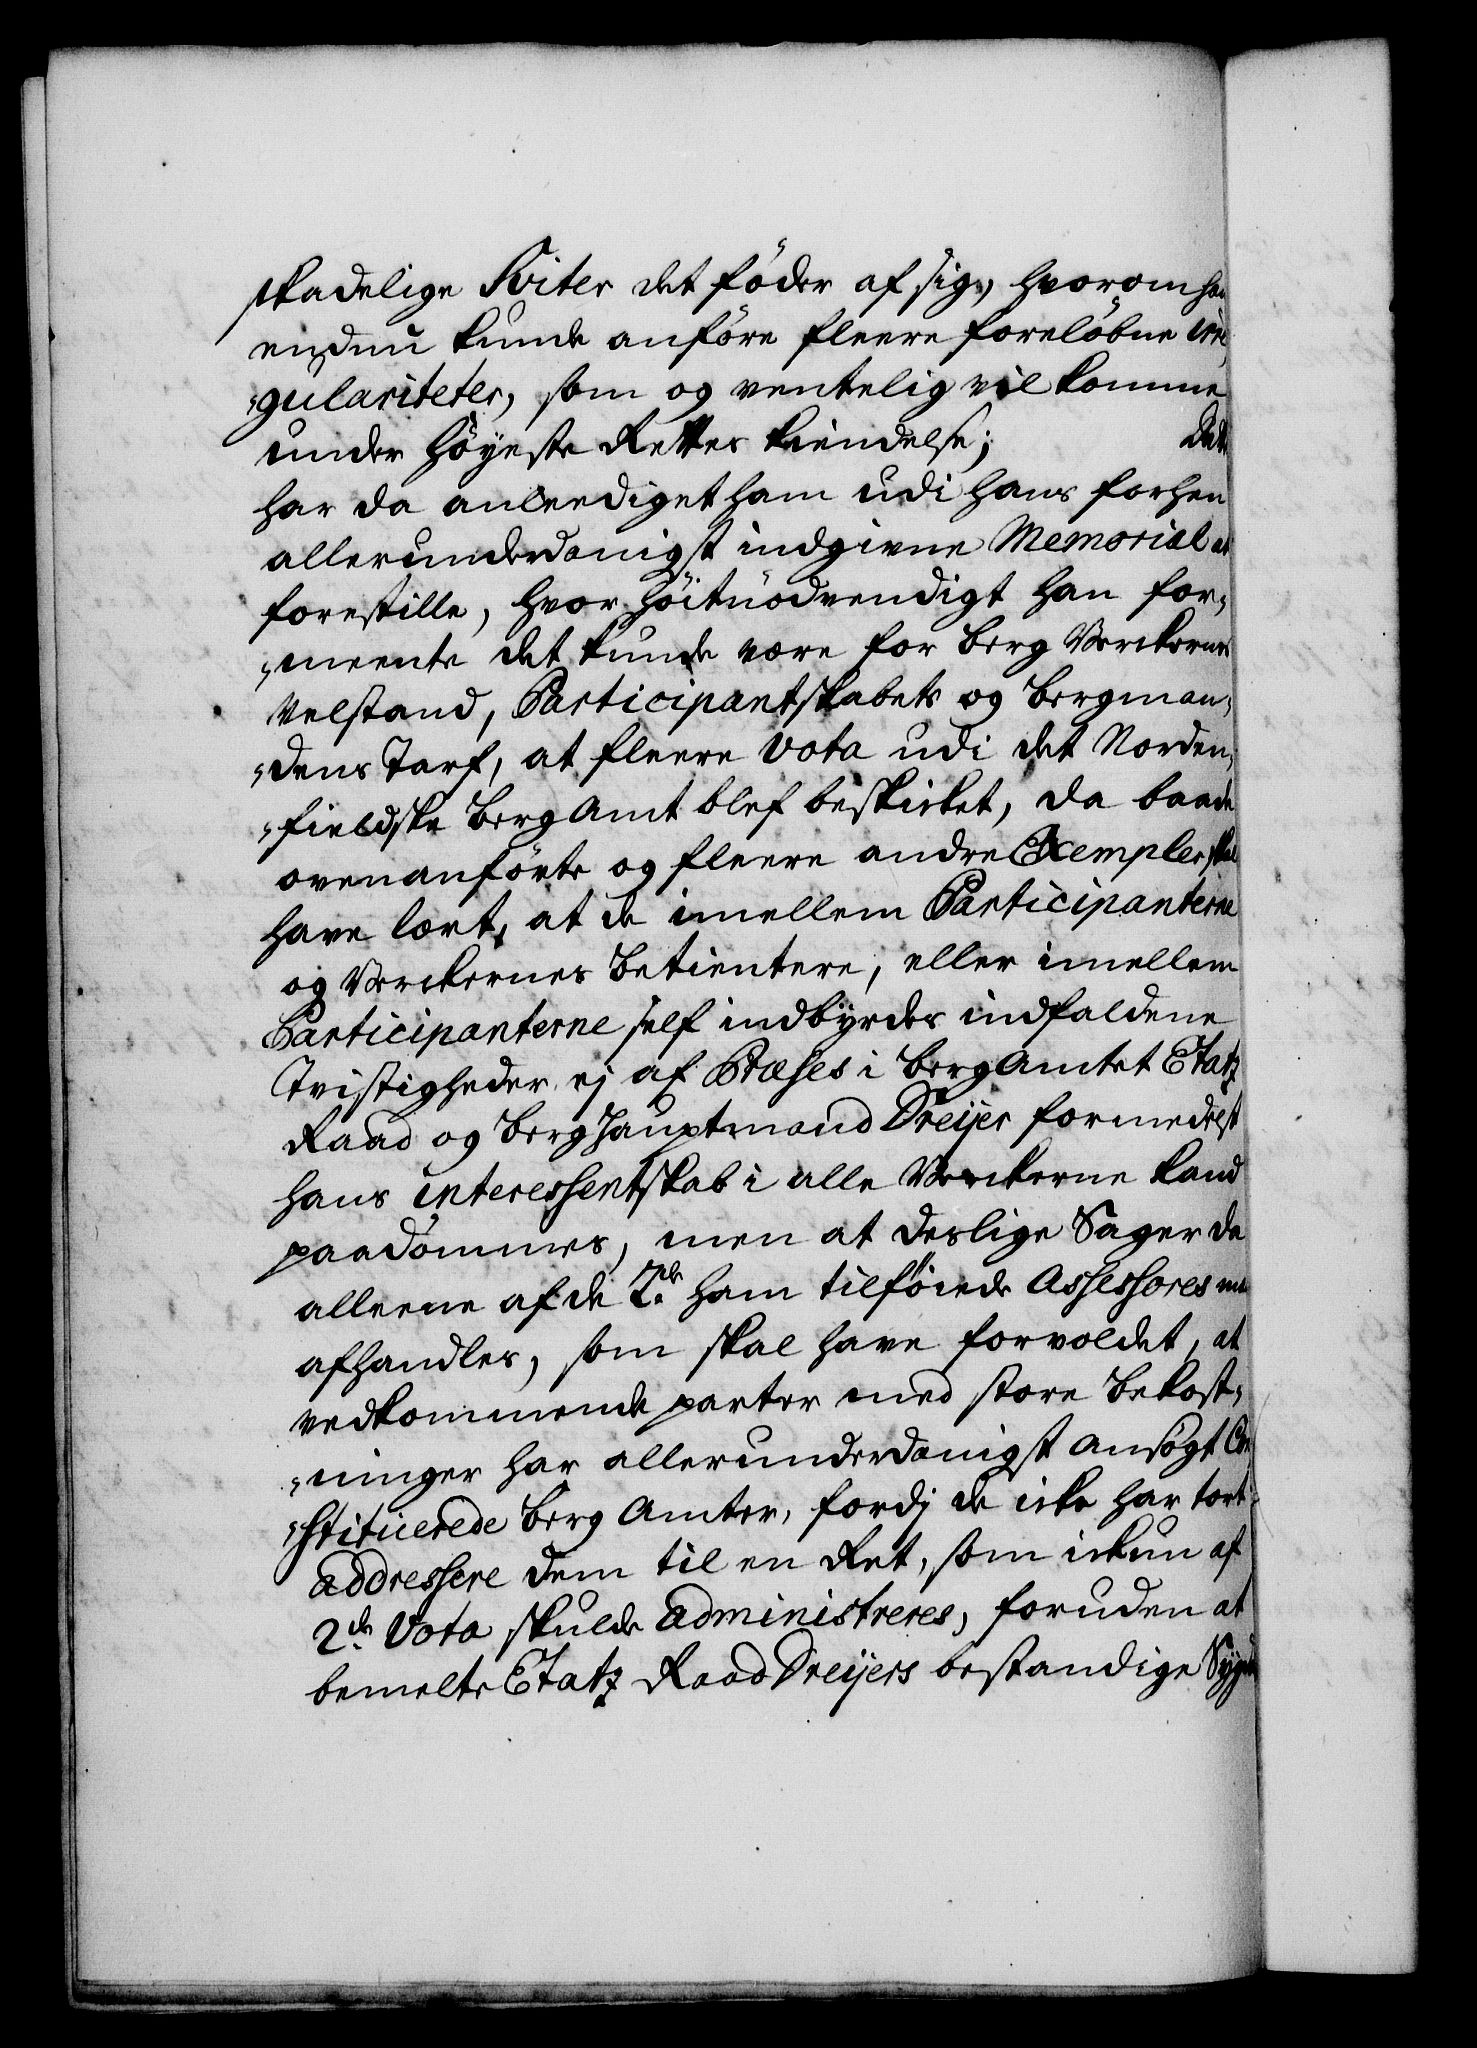 skadelige Sviter det föder af sig, hvorom han
endnu kunde anföre fleere foreløbne irre,
„gulariteter, som og ventelig vil komme
under Höyeste Rettes kiendelse; Dette
har da anleediget ham udi hans forhen
allerunderdanigst indgivne Memorial at
forestille, hvor höitnödvendigt han for„
„meente det kunde være for Berg Verckernes
Velstand, Participantskabets og Bergman„
„dens Tarf, at fleere Vota udi det Norden„
„fieldske Berg Amt blef beskicket, da baade
ovenanförte og fleere andre Exempler skal
have lært, at de imellem Participanterne
og Verckernes Betientere, eller imellem
Participanterne self indbyrdes indfaldene
Tvistigheder ej af Præses i BergAmtet Etatz
Raad og Berg Hauptmand Dreijer formedelst
hans interessentskab i alle Verckerne kand
paadömmes, men at deslige Sager da
alleene af de 2de ham tilföiede Assessores maa
afhandles, som skal have forvoldet, at
vedkommende parter med store Bekost„
„ninger har allerunderdanigst ansögt Con
„stituerede Berg Amter, fordj de icke har tort
addressere dem til en Ret, som ickun af
2de Vota skulde administreres, foruden at
bemelte Etatz Raad Dreijers bestandige Syge